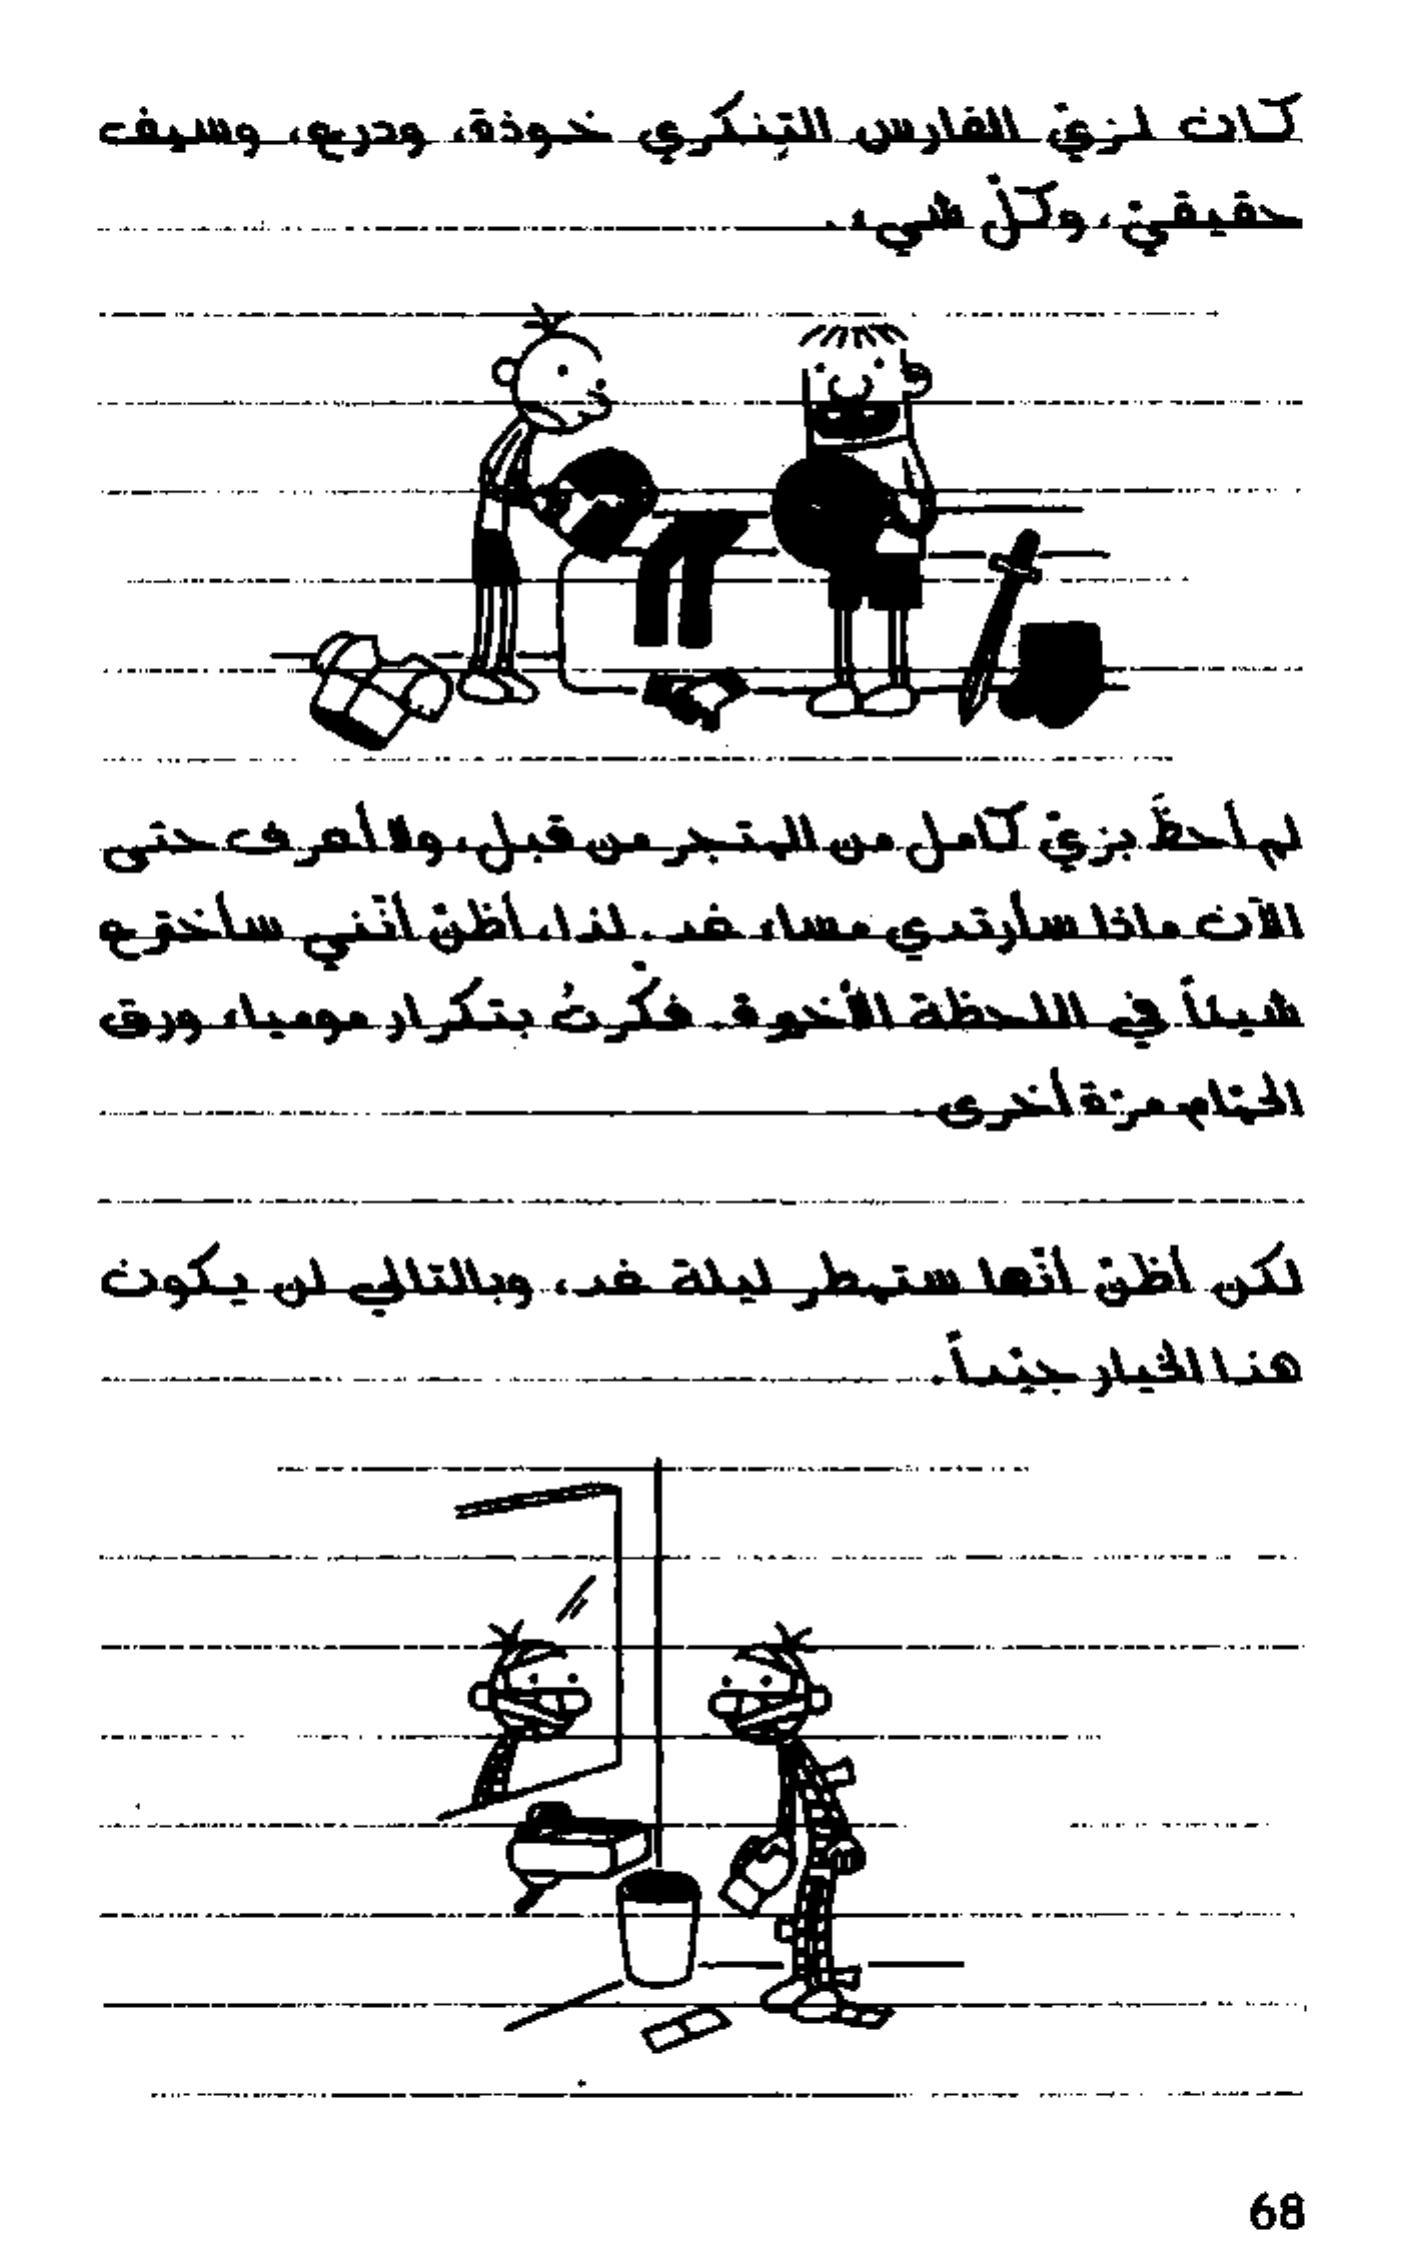 كان لزيّ الفارس التنكري خوذة، ودرع، وسيف
حقيقيّ، وكلّ شيء.
لم أحظَ بزيّ كامل من المتجر من قبل، ولا أعرف حتى
الآن ماذا سأرتدي مساء غد. لذا، أظنّ أنّني سأخترع
شيئاً في اللحظة الأخيرة. فكّرتُ بتكرار مومياء ورق
الحمّام مرّة أخرى.
لكن أظنّ أنّها ستمطر ليلة غد، وبالتالي لن يكون
هذا الخيار جيّداً.
68